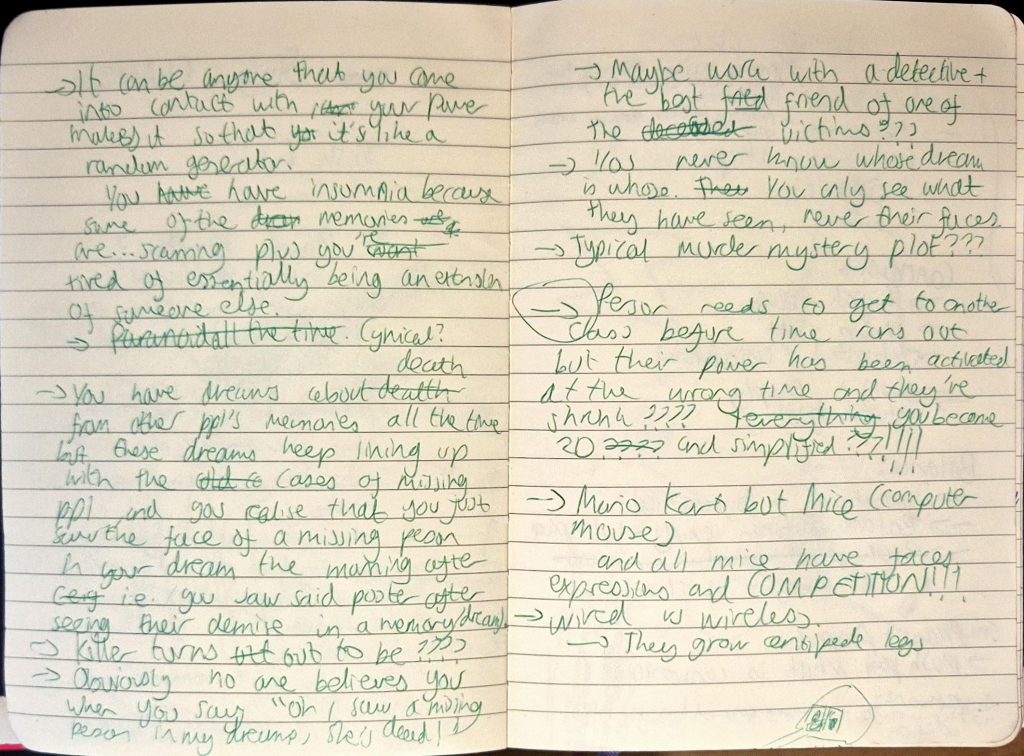 → It can be anyone that you come
into contact with your power
makes it so that it's like a
random generator.
You have insomnia because
some of the memories
are... scarring plus you're
tired of essentially being an extension
of someone else.
→ Paranoid all the time. Cynical?
death
→ You have dreams about death
from other ppl's memories all the time
but these dreams keep lining up
with the cases of missing
ppl and you realise that you just
saw the face of a missing person
in your dream the morning after
i.e. you saw said poster after
seeing their demise in a memory/dream.
→ Killer turns out to be ????
→ Obviously no one believes you
when you say "Oh I saw a missing
person in my dreams, she's dead!"
→ Maybe work with a detective +
the best fried friend of one of
the deceased victims???
→ You never know whose dream
is whose. They You only see what
they have seen, never their faces.
→ Typical murder mystery plot???
→ Person needs to get to another
class before time runs out
but their power has been activated
at the wrong time and they're
shrunk ???? everything you become
2D ???? and simplified ???!!!!
→ Mario Kart but Mice (computer
mouse)
and all mice have faces
expressions and COMPETITION!!!
→ wired vs wireless.
→ They grow centipede legs